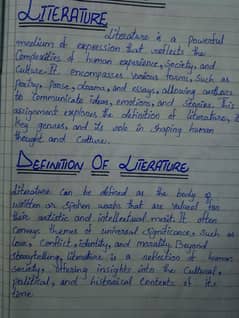 LITERATURE
Literature is a powerful
medium of expression that reflects the
complexities of human experience, society, and
culture. It encompasses various forms, such as
poetry, prose, drama, and essays, allowing authors
to communicate ideas, emotions, and stories. This
assignment explores the definition of literature, its
key genres, and its role in shaping human
thought and culture.
DEFINITION OF LITERATURE
Literature can be defined as the body of
written or spoken works that are valued for
their artistic and intellectual merit. It often
conveys themes of universal significance, such as
love, conflict, identity, and morality. Beyond
storytelling, literature is a reflection of human
society, offering insights into the cultural,
political, and historical contexts of its
time